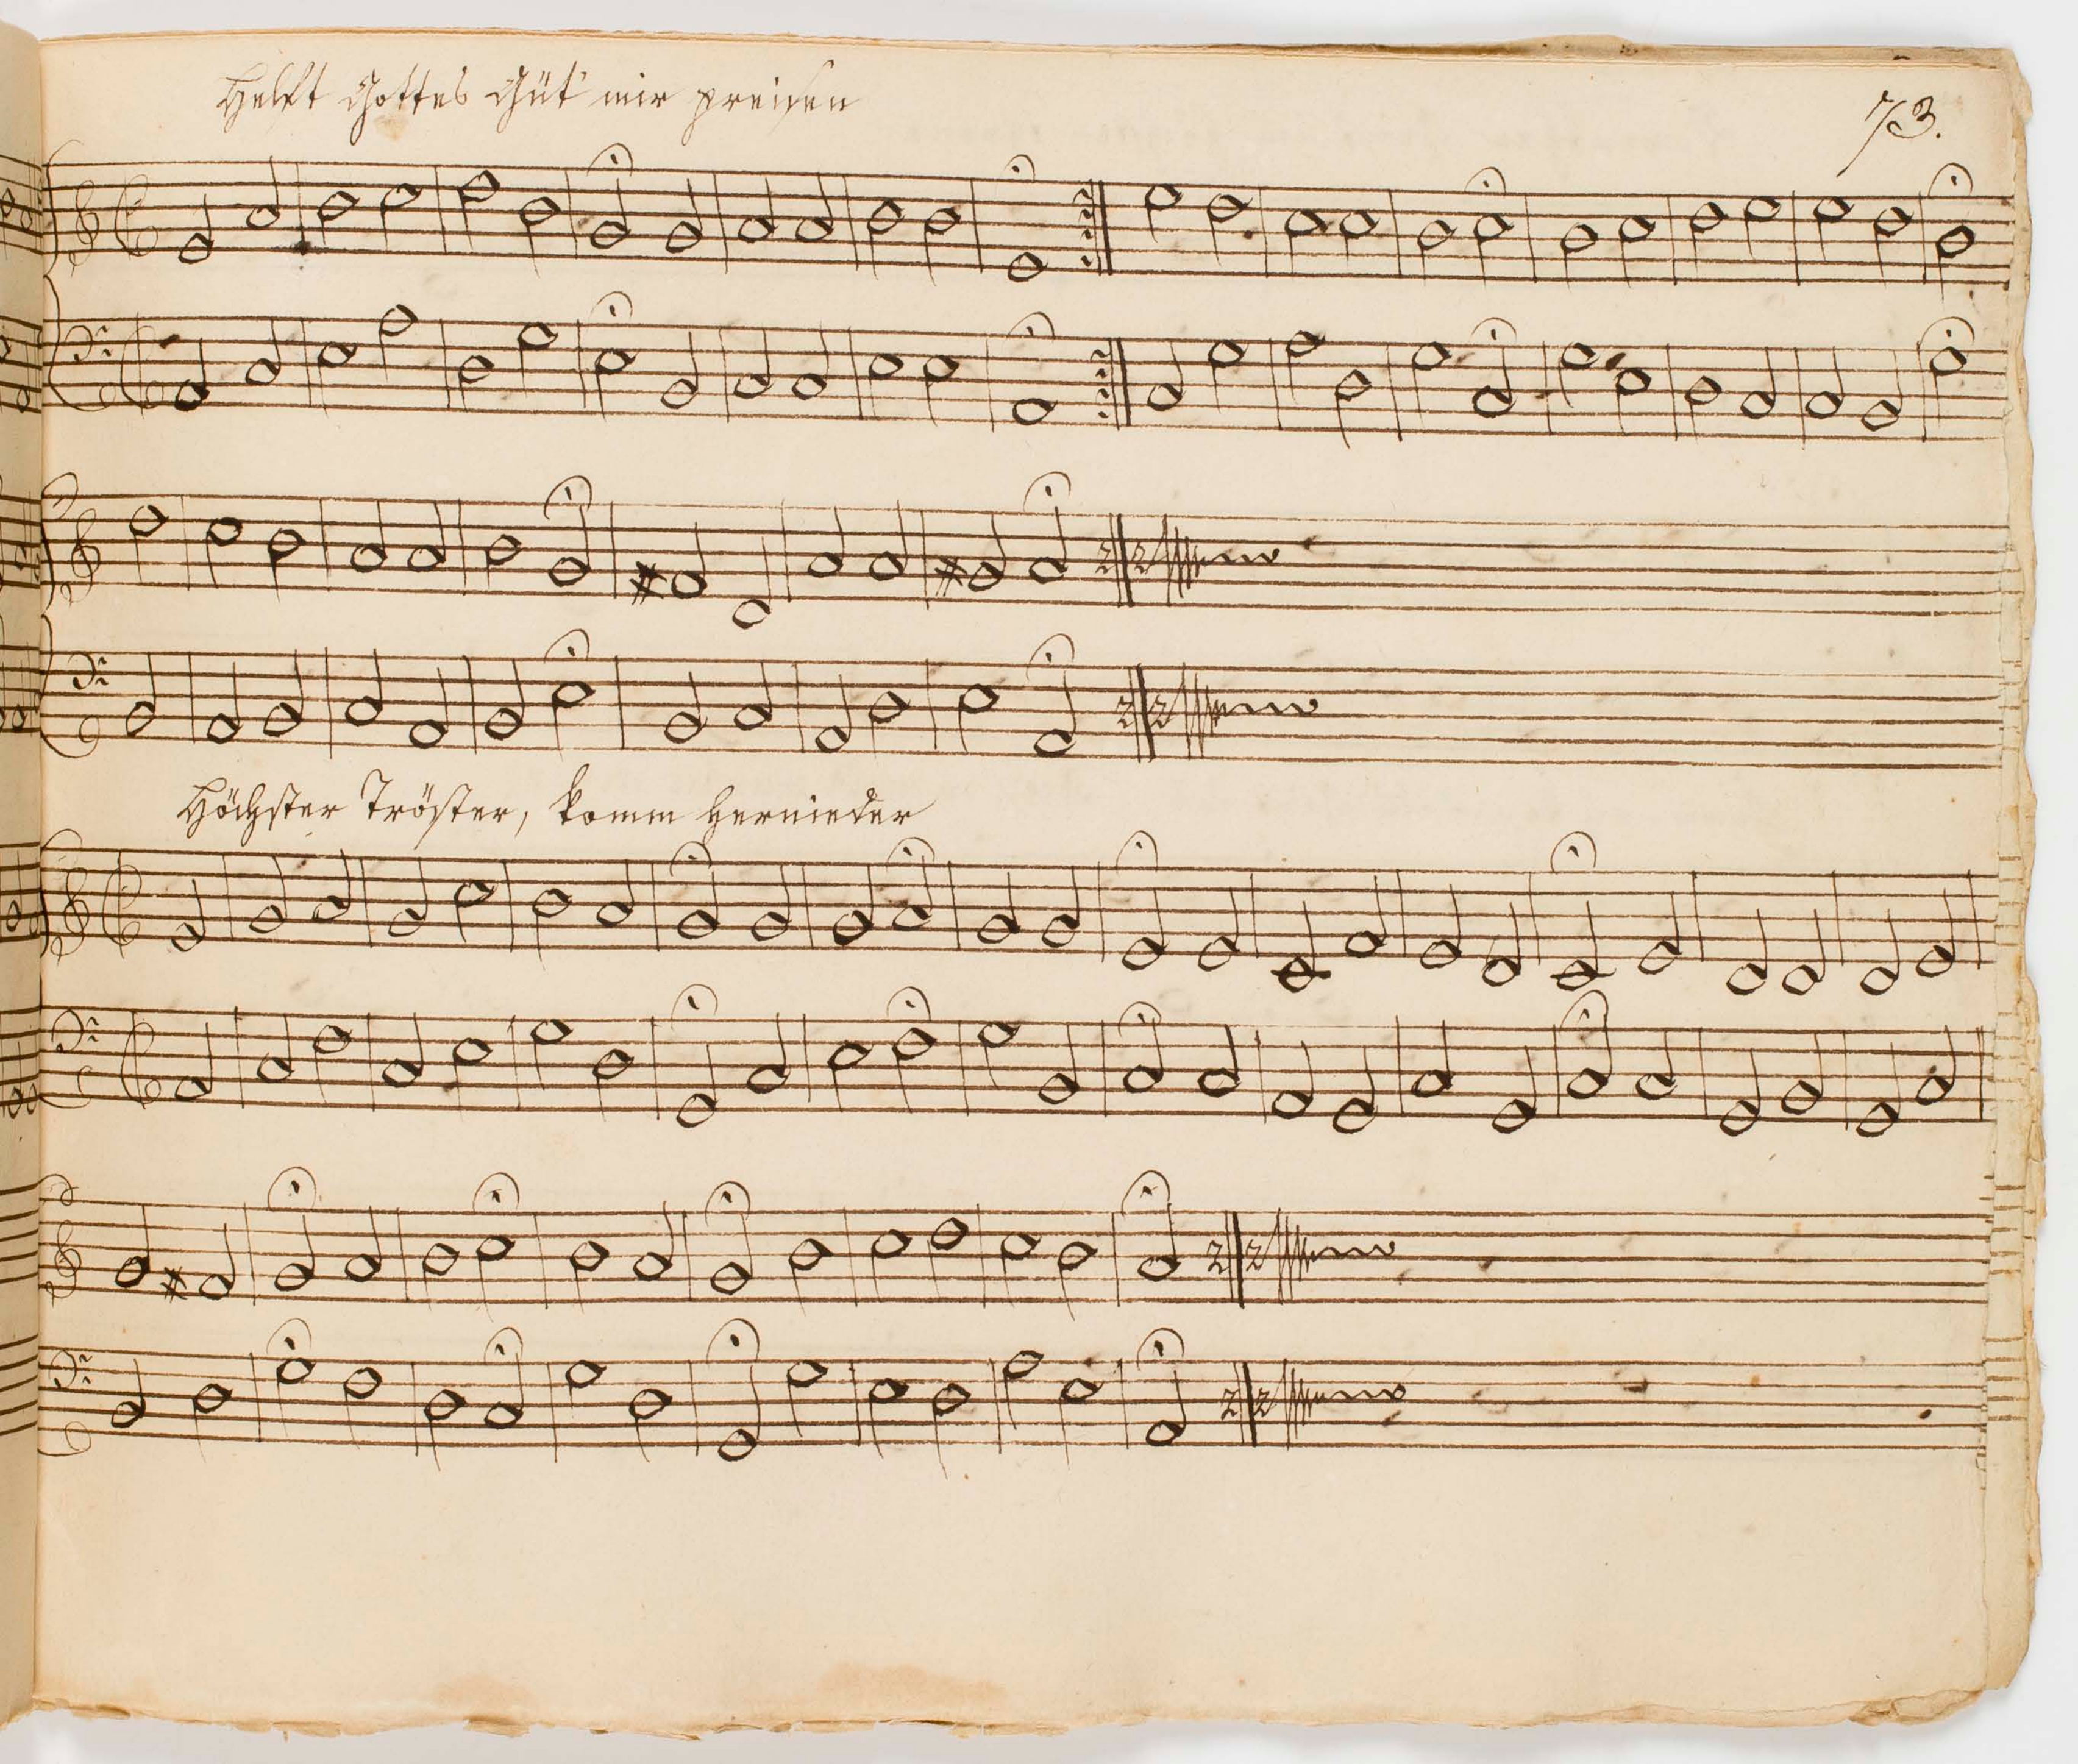 Helft Gottes Güt' mir preisen
73.
Höchster Tröster, komm hernieder